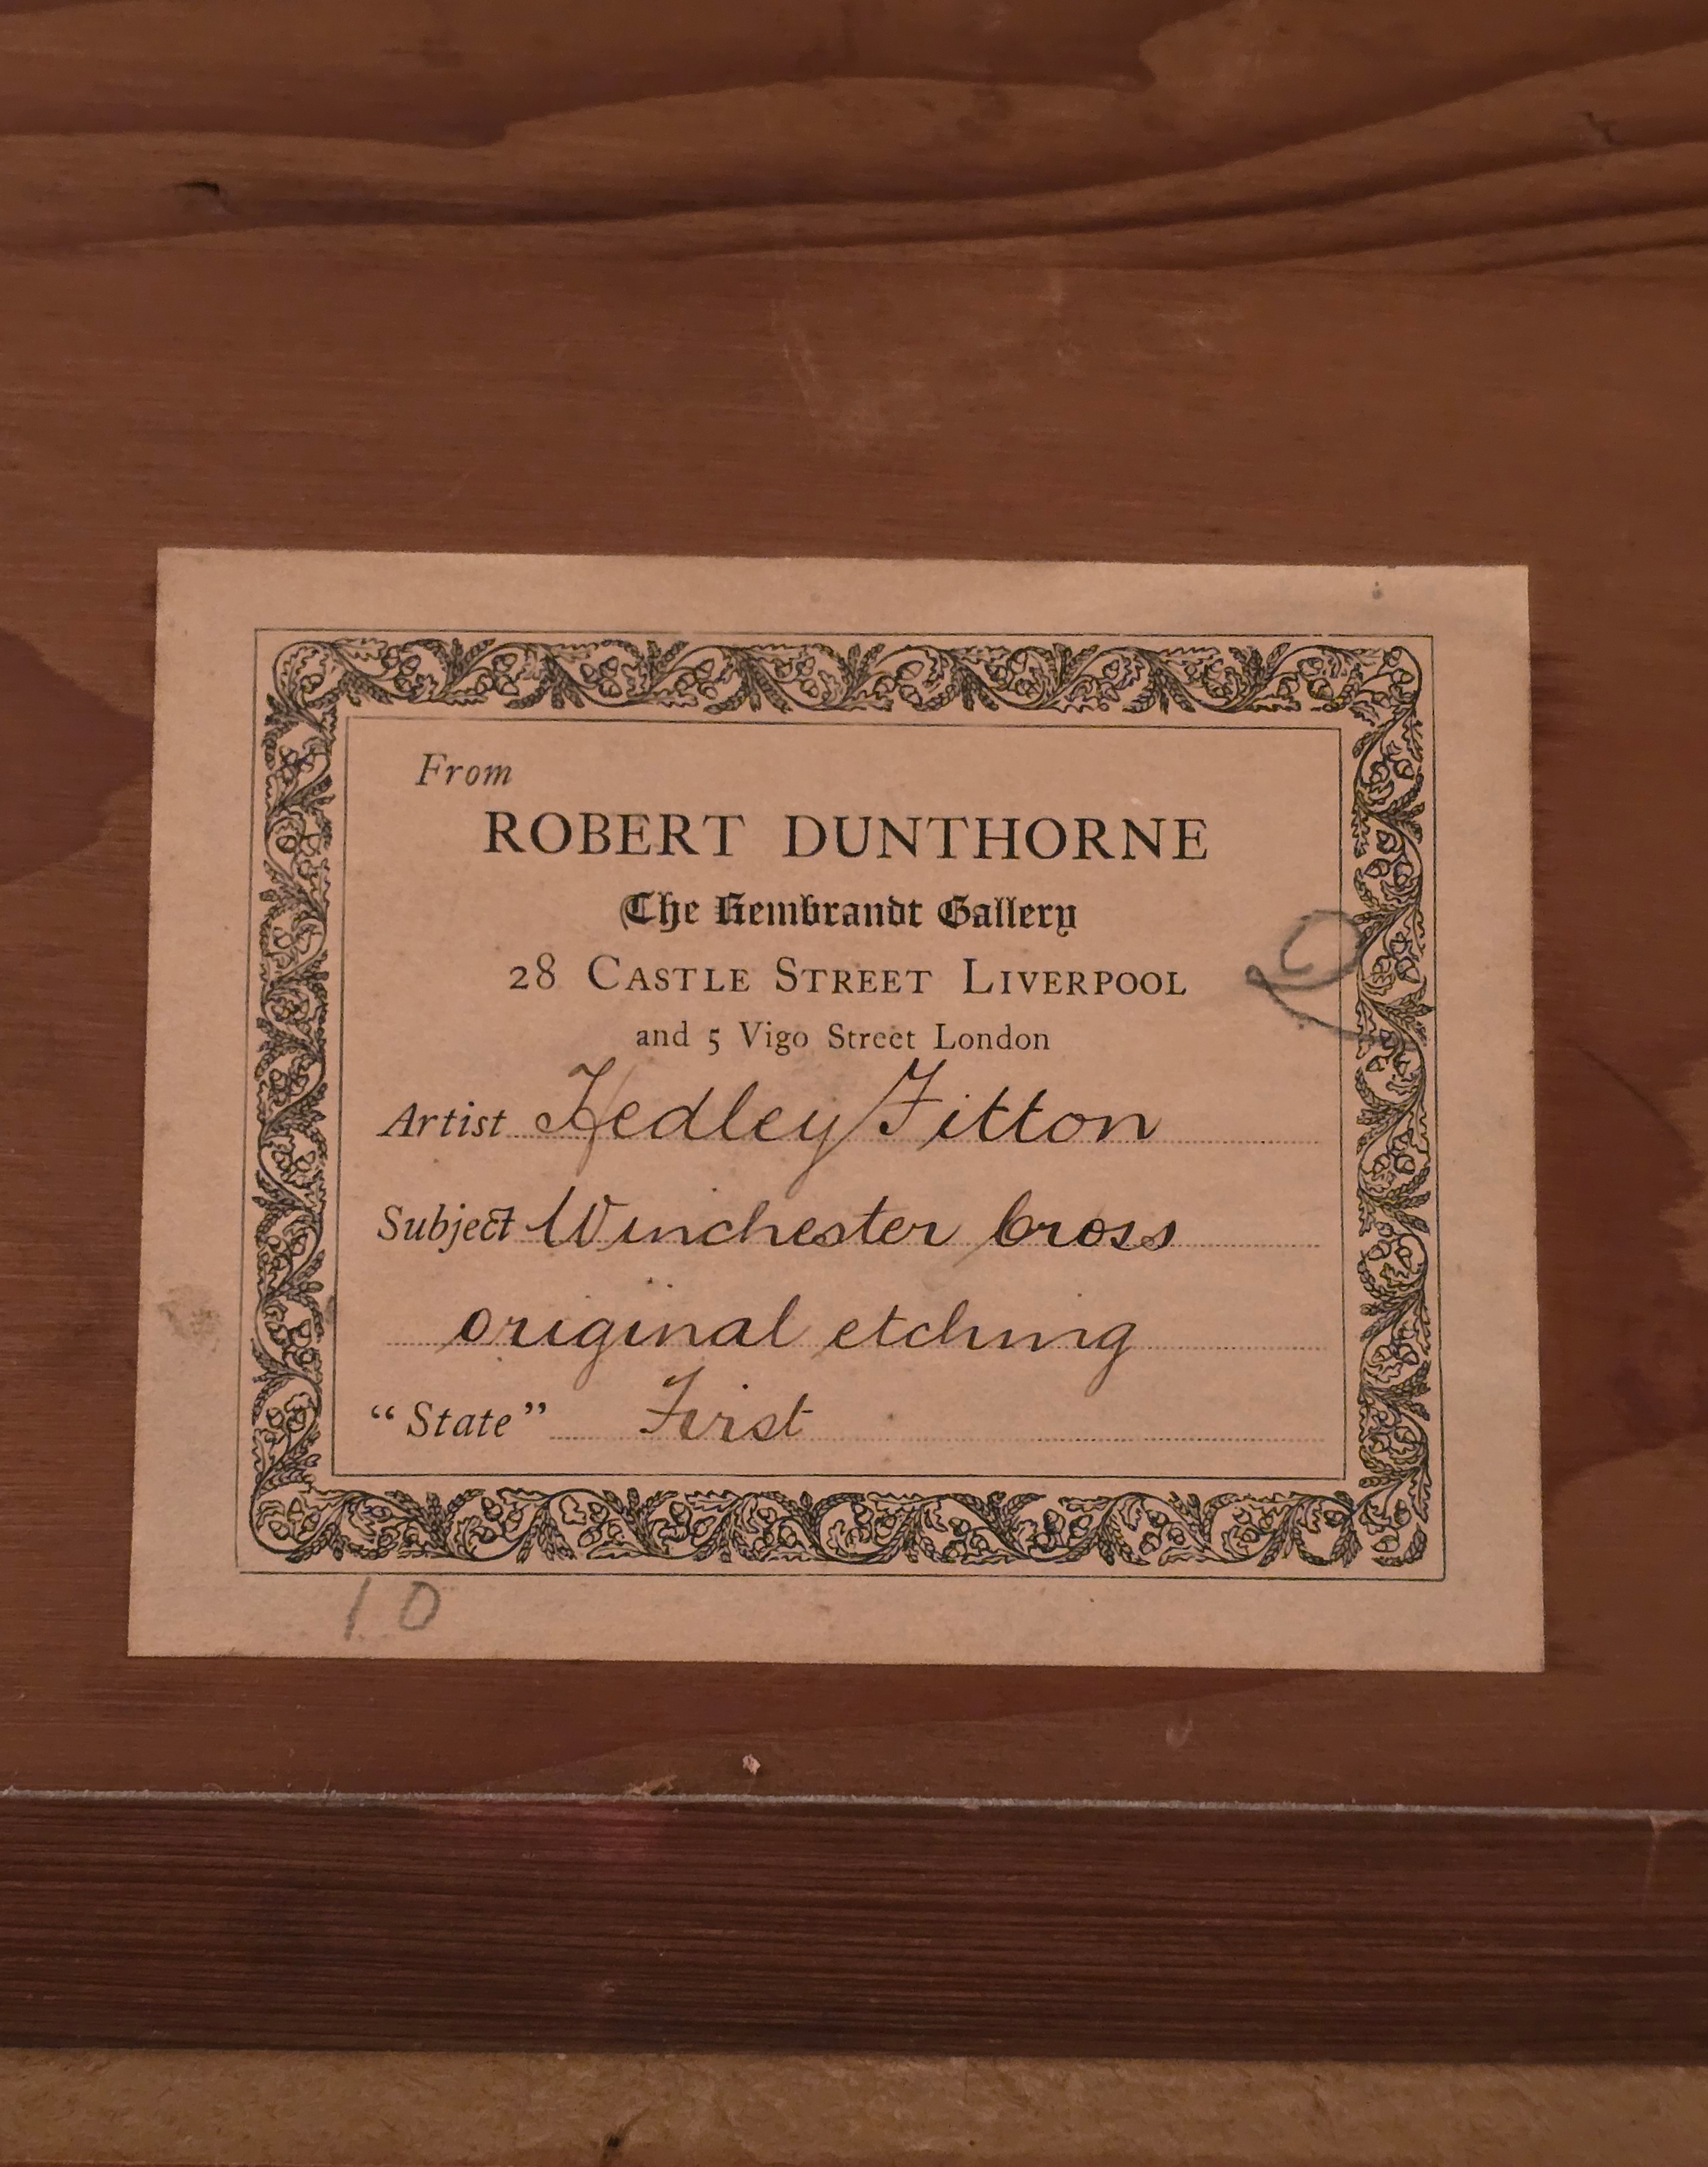 From
ROBERT DUNTHORNE
The Rembrandt Gallery
28 CASTLE STREET LIVERPOOL
and 5 Vigo Street London
Artist Hedley Fitton
Subject Winchester Cross
original etching
"State" First
10